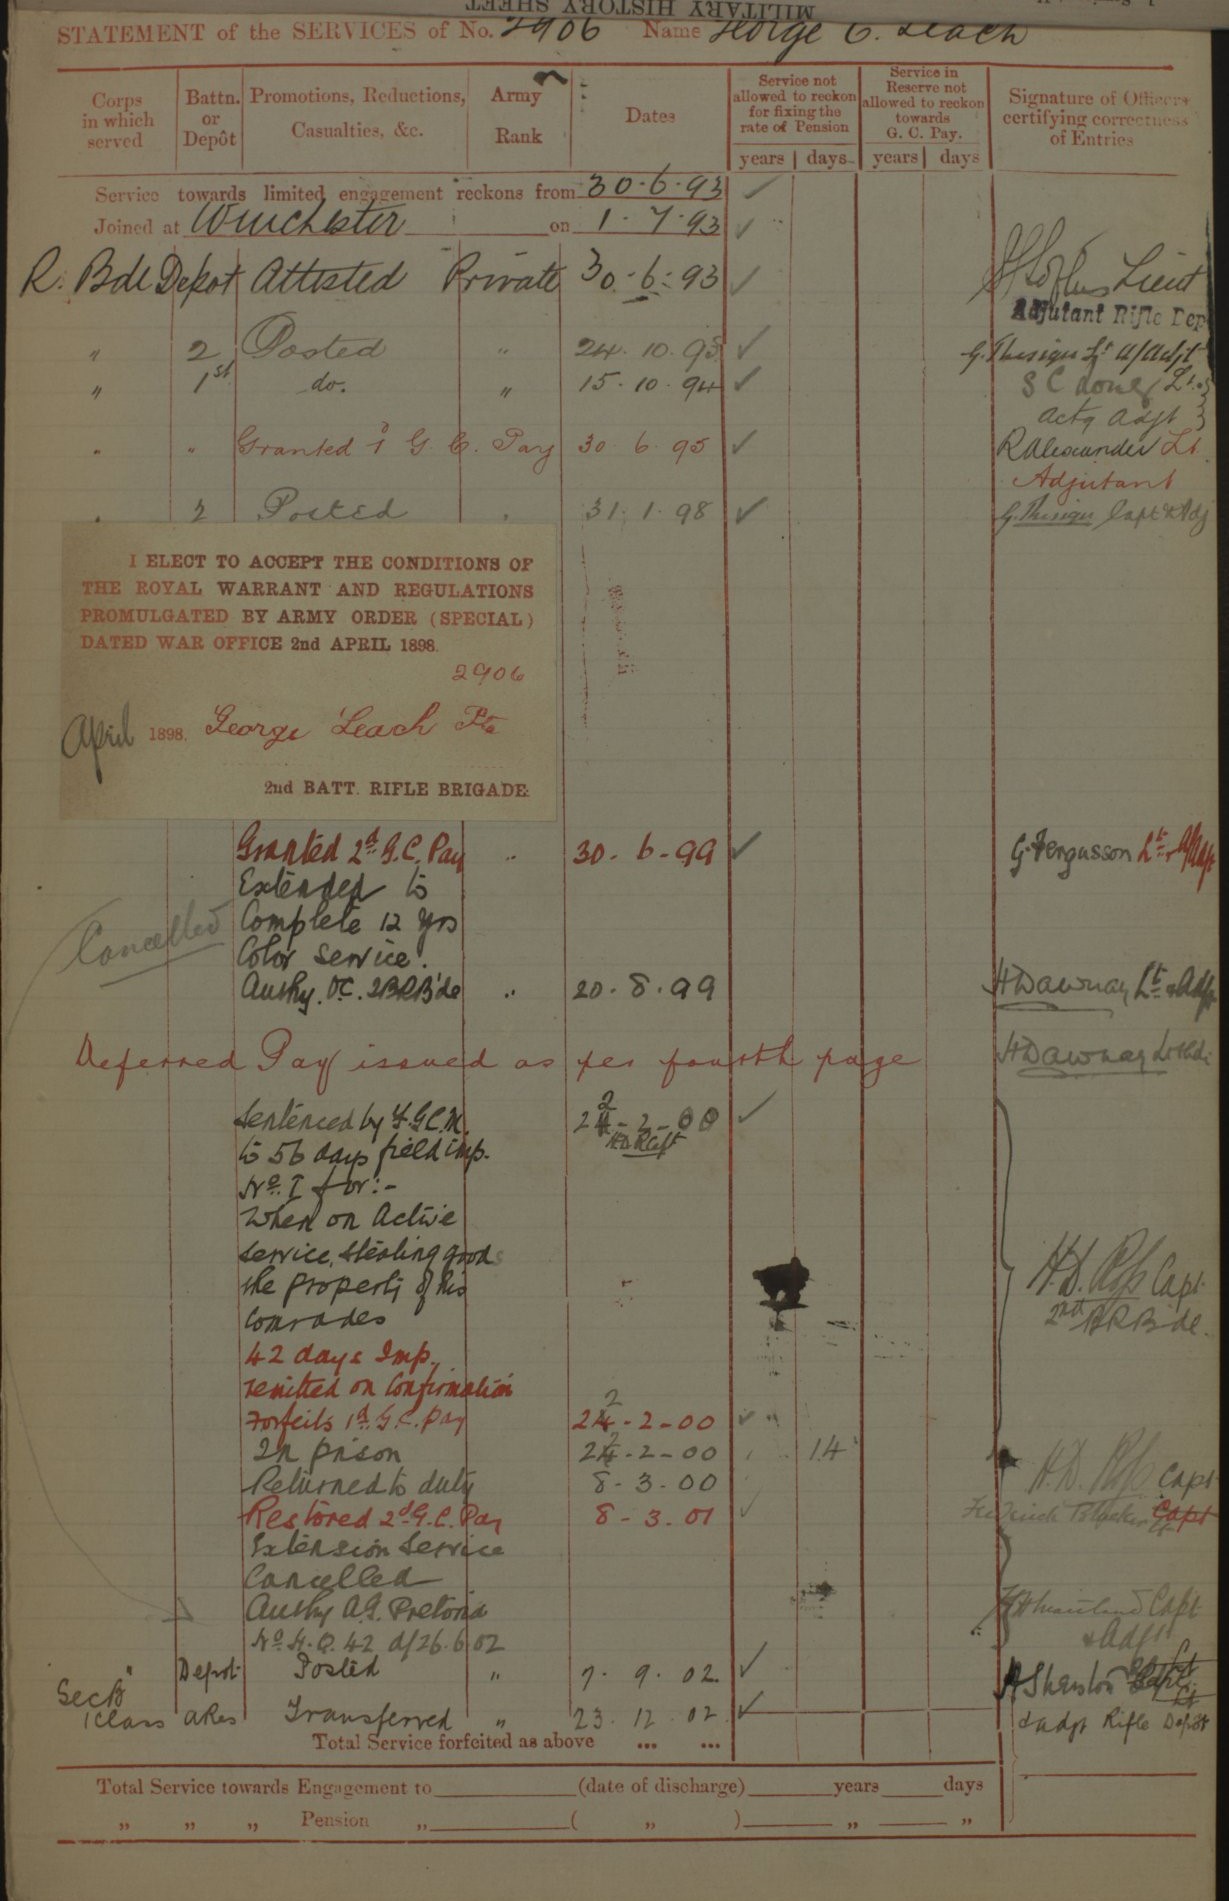 MILITARY HISTORY SHEET
STATEMENT of the SERVICES of No. 2906 Name George C. Leach
Corps in which served
Battn. or Depôt
Promotions, Reductions, Casualties, &c.
Army Rank
Dates
Service not allowed to reckon for fixing the rate of Pension
years days
Service in Reserve not allowed to reckon towards G. C. Pay.
years days
Signature of Officers certifying correctness of Entries
Service towards limited engagement reckons from 30.6.93
Joined at Winchester on 1.7.93
R. Bde Depot Attested Private 30-6-93 Lieut
Adjutant Rifle Dep
" 2 Posted " 24.10.93 G. Thesiger Lt a/Adjt
" 1st do. " 15.10.94 S C Lt.
actg Adjt
" " Granted 1 G. C. Pay 30.6.95 R Alexander Lt.
Adjutant
" 2 Posted " 31.1.98 G. Thesiger Capt & Adj
I ELECT TO ACCEPT THE CONDITIONS OF
THE ROYAL WARRANT AND REGULATIONS
PROMULGATED BY ARMY ORDER (SPECIAL)
DATED WAR OFFICE 2nd APRIL 1898.
2906
April 1898. George Leach Pte
2nd BATT. RIFLE BRIGADE.
Granted 2d G.C. Pay " 30-6-99 G. Fergusson Lt
Extended to
Complete 12 yrs
Cancelled
Color Service.
Authy. O.C. 2B.R.B'de " 20.8.99 H Dawnay Lt & Adjt
Deferred Pay issued as per fourth page H Dawnay Lt & Adj
Sentenced by F.G.C.M. 22-2-00
to 56 days field imp.
No. I for:-
When on Active
Service, Stealing goods
the property of his
Comrades
H.D. Ross Capt
2nd B R B'de.
42 days Imp.
remitted on Confirmation
Forfeits 1d. G.C. pay 22-2-00
In prison 22-2-00 14
Returned to duty 8-3-00 H.D. Ross Capt
Restored 2d G.C. Pay 8-3-01 Capt
Extension Service
Cancelled
Authy A.G. Pretoria Capt
No H.O. 42 d/26.6.02 & Adjt
" Depot Posted " 7.9.02
Sec B
1 Class A Res Transferred " 23.12.02 & adjt Rifle Depôt
Total Service forfeited as above ... ...
Total Service towards Engagement to (date of discharge) years days
" " " Pension " ( " ) " "